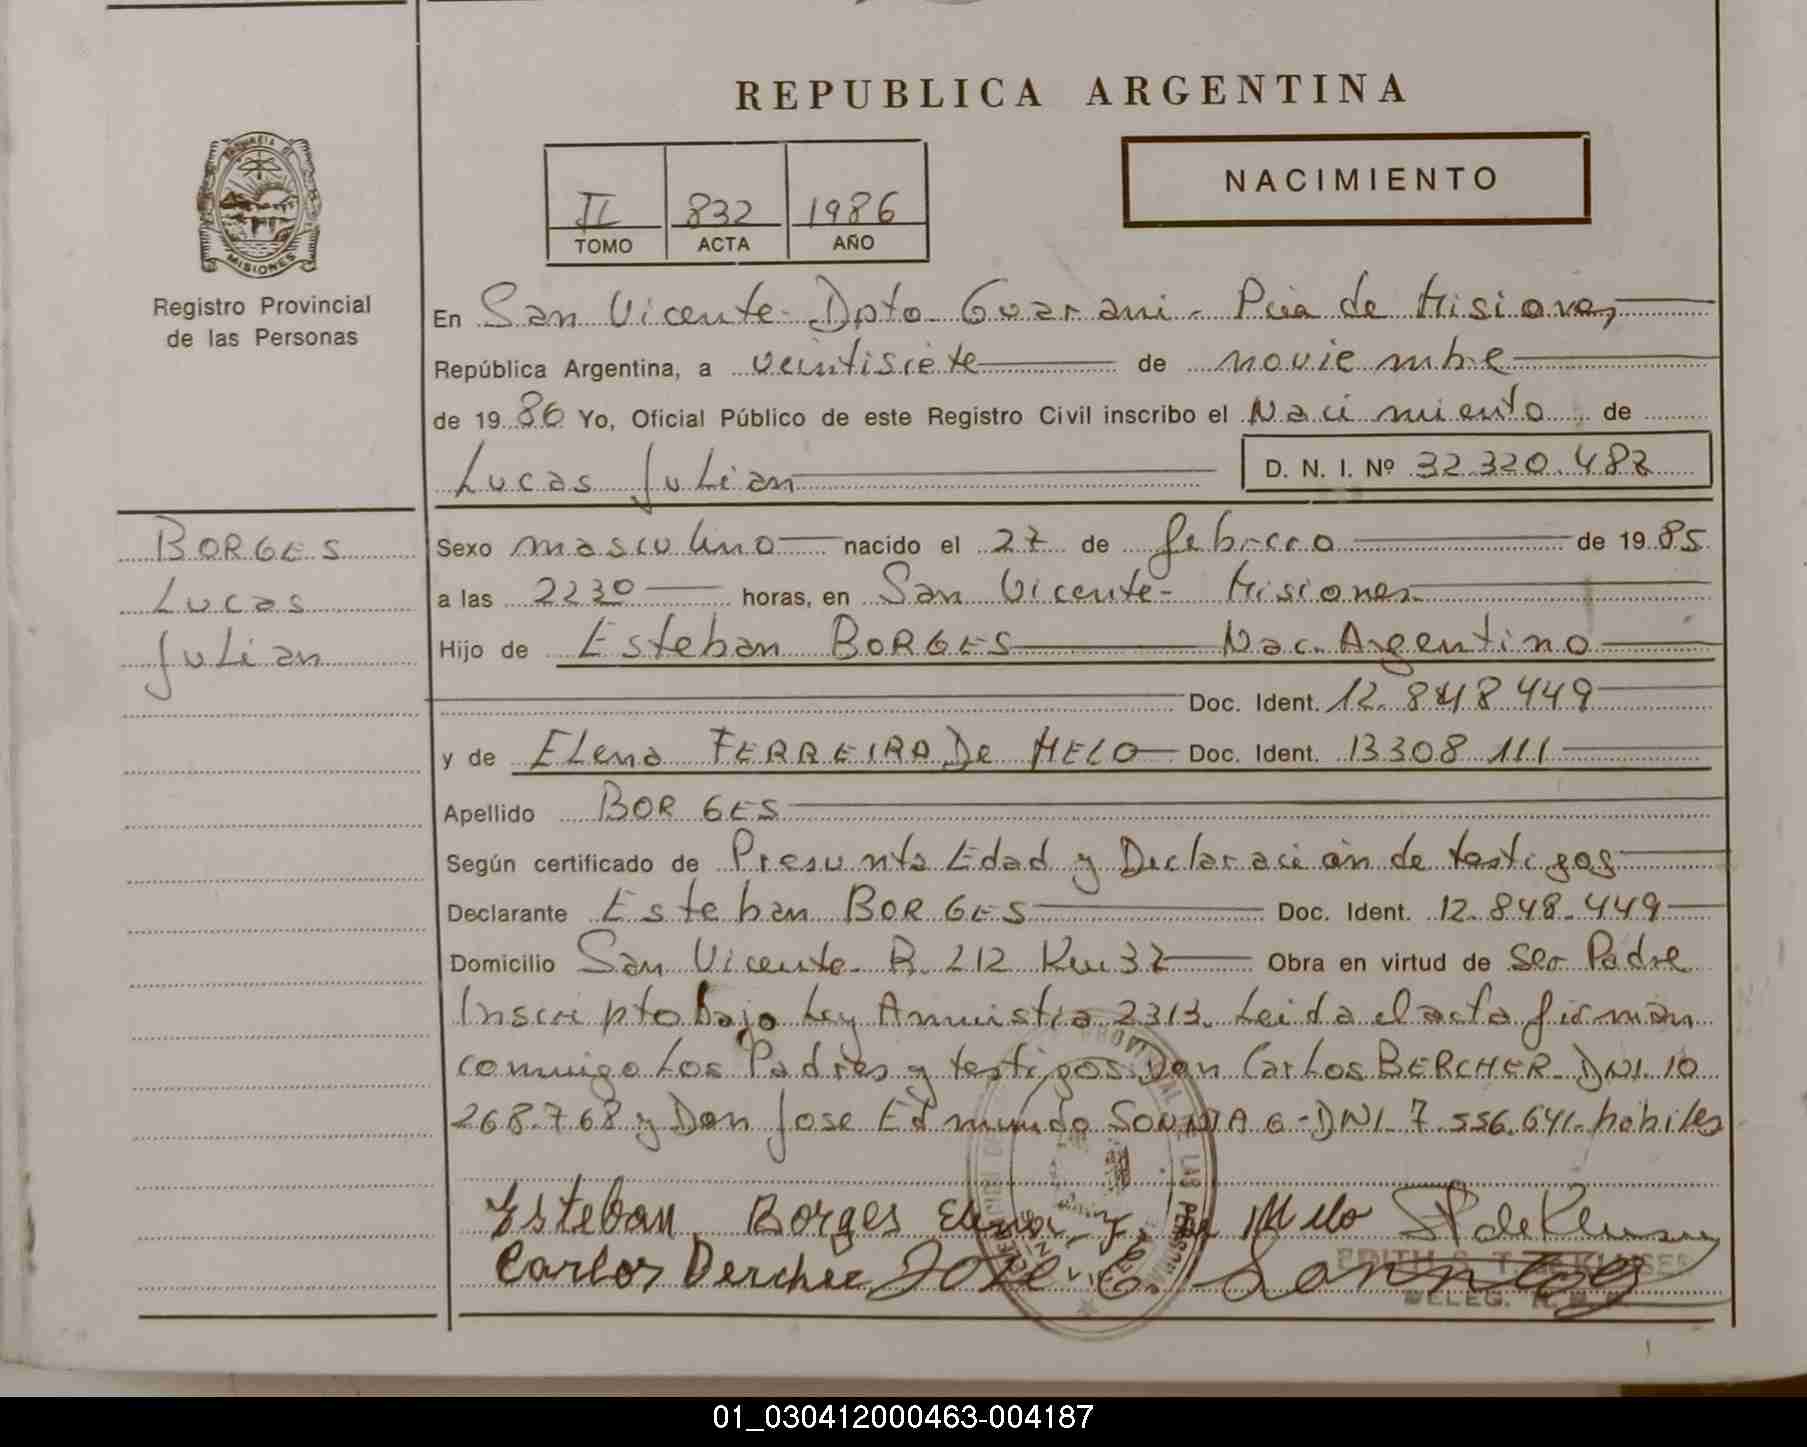 REPUBLICA ARGENTINA
NACIMIENTO
II 832 1986
TOMO ACTA AÑO
PROVINCIA DE
MISIONES
Registro Provincial
de las Personas
En San Vicente- Dpto Guarani- Pcia de Misiones,
República Argentina, a veintisiete de noviembre
de 1986 Yo, Oficial Público de este Registro Civil inscribo el Nacimiento de
Lucas Julian D. N. I. Nº 32.320.482
BORGES
Lucas
Julian
Sexo masculino nacido el 27 de febrero de 1985
a las 2230 horas, en San Vicente- Misiones
Hijo de Esteban BORGES Nac. Argentino
Doc. Ident. 12.848449
y de Elena FERREIRA De MELO Doc. Ident. 13308 111
Apellido BORGES
Según certificado de Presunta Edad y Declaración de testigos
Declarante Esteban BORGES Doc. Ident. 12.848.449
Domicilio San Vicente- R. 212 Km 32 Obra en virtud de Ser Padre
Inscripto bajo Ley Amnistia 2313. Leida el acta firman
conmigo Los Padres y testigos Don Carlos BERCHER- DNI. 10
268.768 y Don Jose Edmundo SONNTAG-DNI. 7.556.641. hábiles
Esteban Borges Elena F. de Melo
Carlos Bercher Jose E. Sonntag
01_030412000463-004187